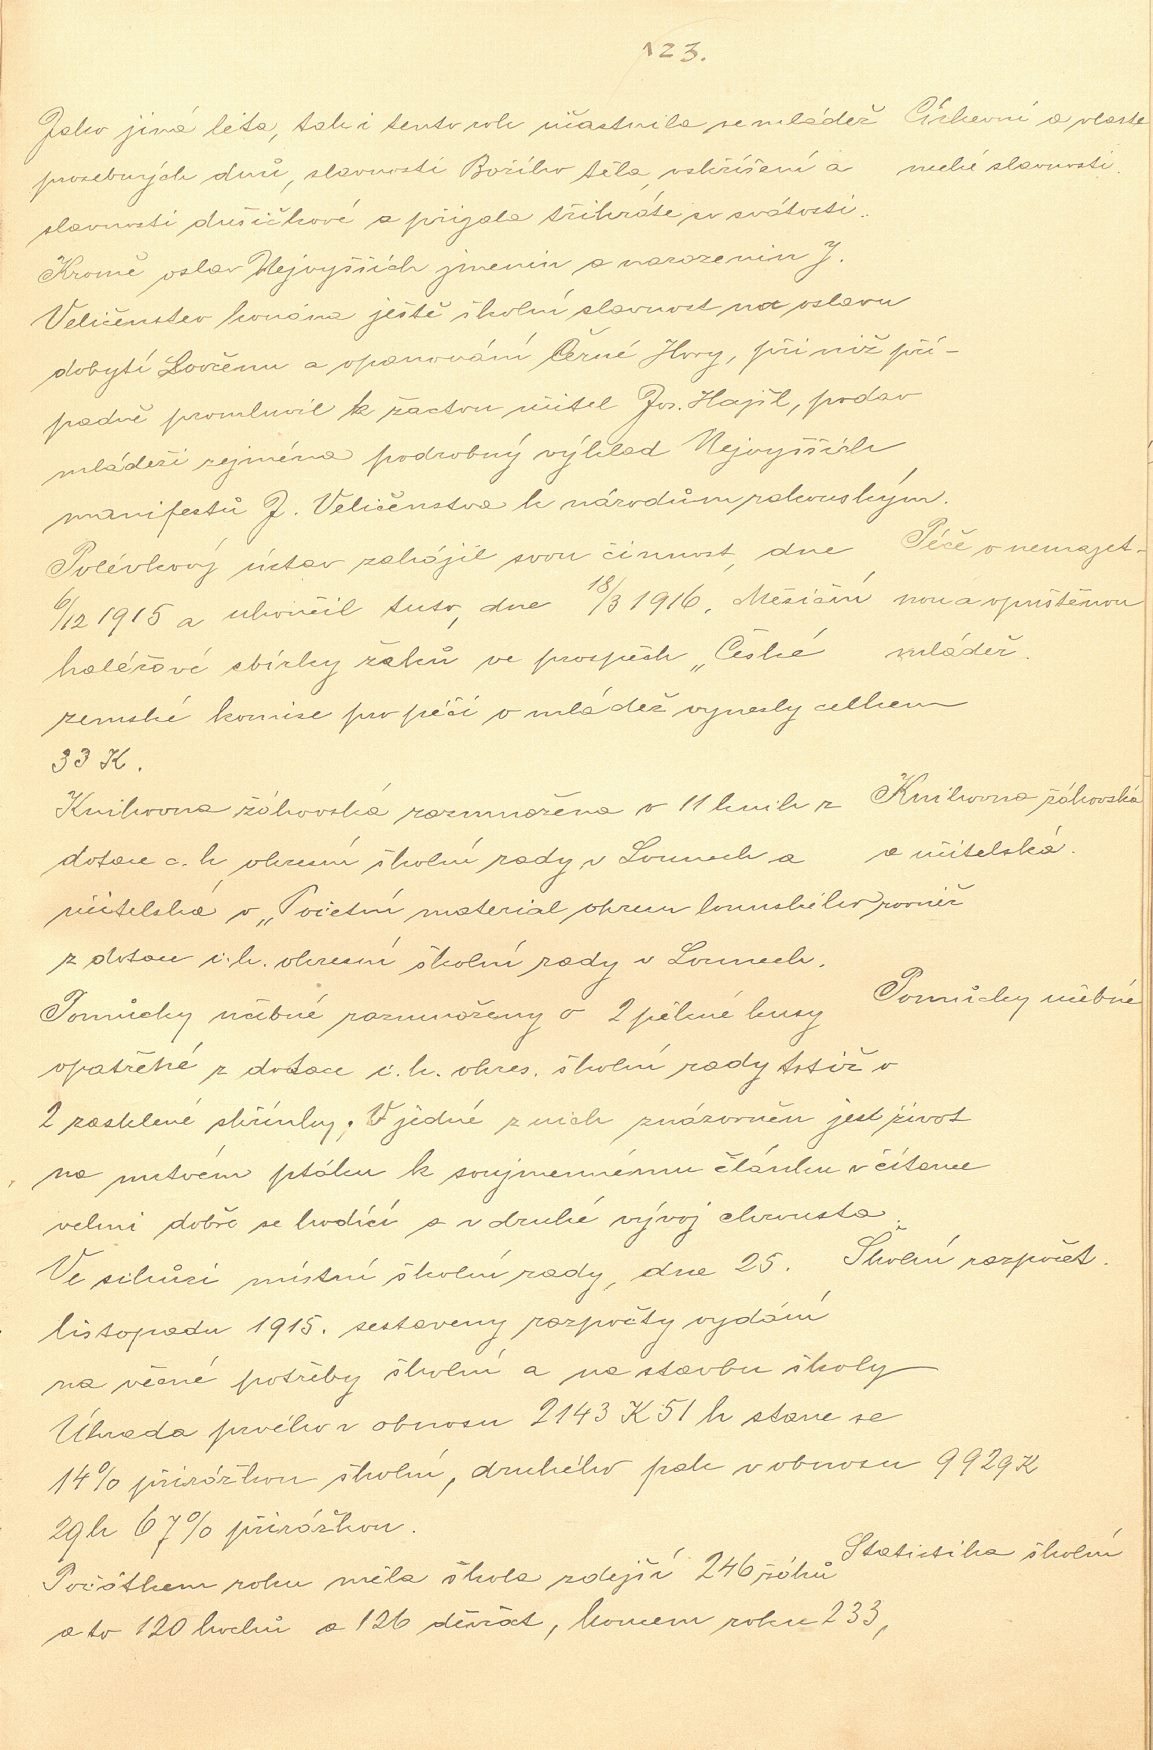 123.
Jako jiná léta, tak i tento rok účastnila se mládež
Církevní a vlaste
prosebných dnů, slavností Božího těla, vzkříšení a
necké slavnosti.
slavnosti dušičkové a přijala třikráte sv. svátosti.
Kromě oslav Nejvyšších jmenin a narozenin J.
Veličenstev konána ještě školní slavnost na oslavu
dobytí Lovčenu a opanování Černé Hory, při níž pří-
padně promluvil k žactvu učitel Jos. Hajšl, podav
mládeži zejména podrobný výklad Nejvyšších
manifestů J. Veličenstva k národům rakouským.
Polévkový ústav zahájil svou činnost, dne
Péče o nemajet-
6/12 1915 a ukončil tuto, dne 18/3 1916. Měsíční
nou a opuštěnou
haléřové sbírky žáků ve prospěch „České
mládež.
zemské komise pro péči o mládež vynesly celkem
33 K.
Knihovna žákovská rozmnožena o 11 knih z
Knihovna žákovská
dotace c. k. okresní školní rady v Lounech a
a učitelská.
učitelská o „Početní material okresu lounského rovněž
z dotace c. k. okresní školní rady v Lounech.
Pomůcky učebné rozmnoženy o 2 pěkné kusy
Pomůcky učebné
opatřené z dotace c. k. okres. školní rady totiž o
2 zasklené skřínky. V jedné z nich znázorněn jest život
na mrtvém ptáku k soujmennému článku v čítance
velmi dobře se hodící a v druhé vývoj chrousta.
Ve schůzi místní školní rady, dne 25.
Školní rozpočet.
listopadu 1915. sestaveny rozpočty vydání
na věcné potřeby školní a na stavbu školy
Úhrada prvého v obnosu 2143 K 51 h stane se
14% přirážkou školní, druhého pak v obnosu 9929 K
29 h 67% přirážkou.
Statistika školní
Počátkem roku měla škola zdejší 246 žáků
a to 120 hochů a 126 děvčat, koncem roku 233,